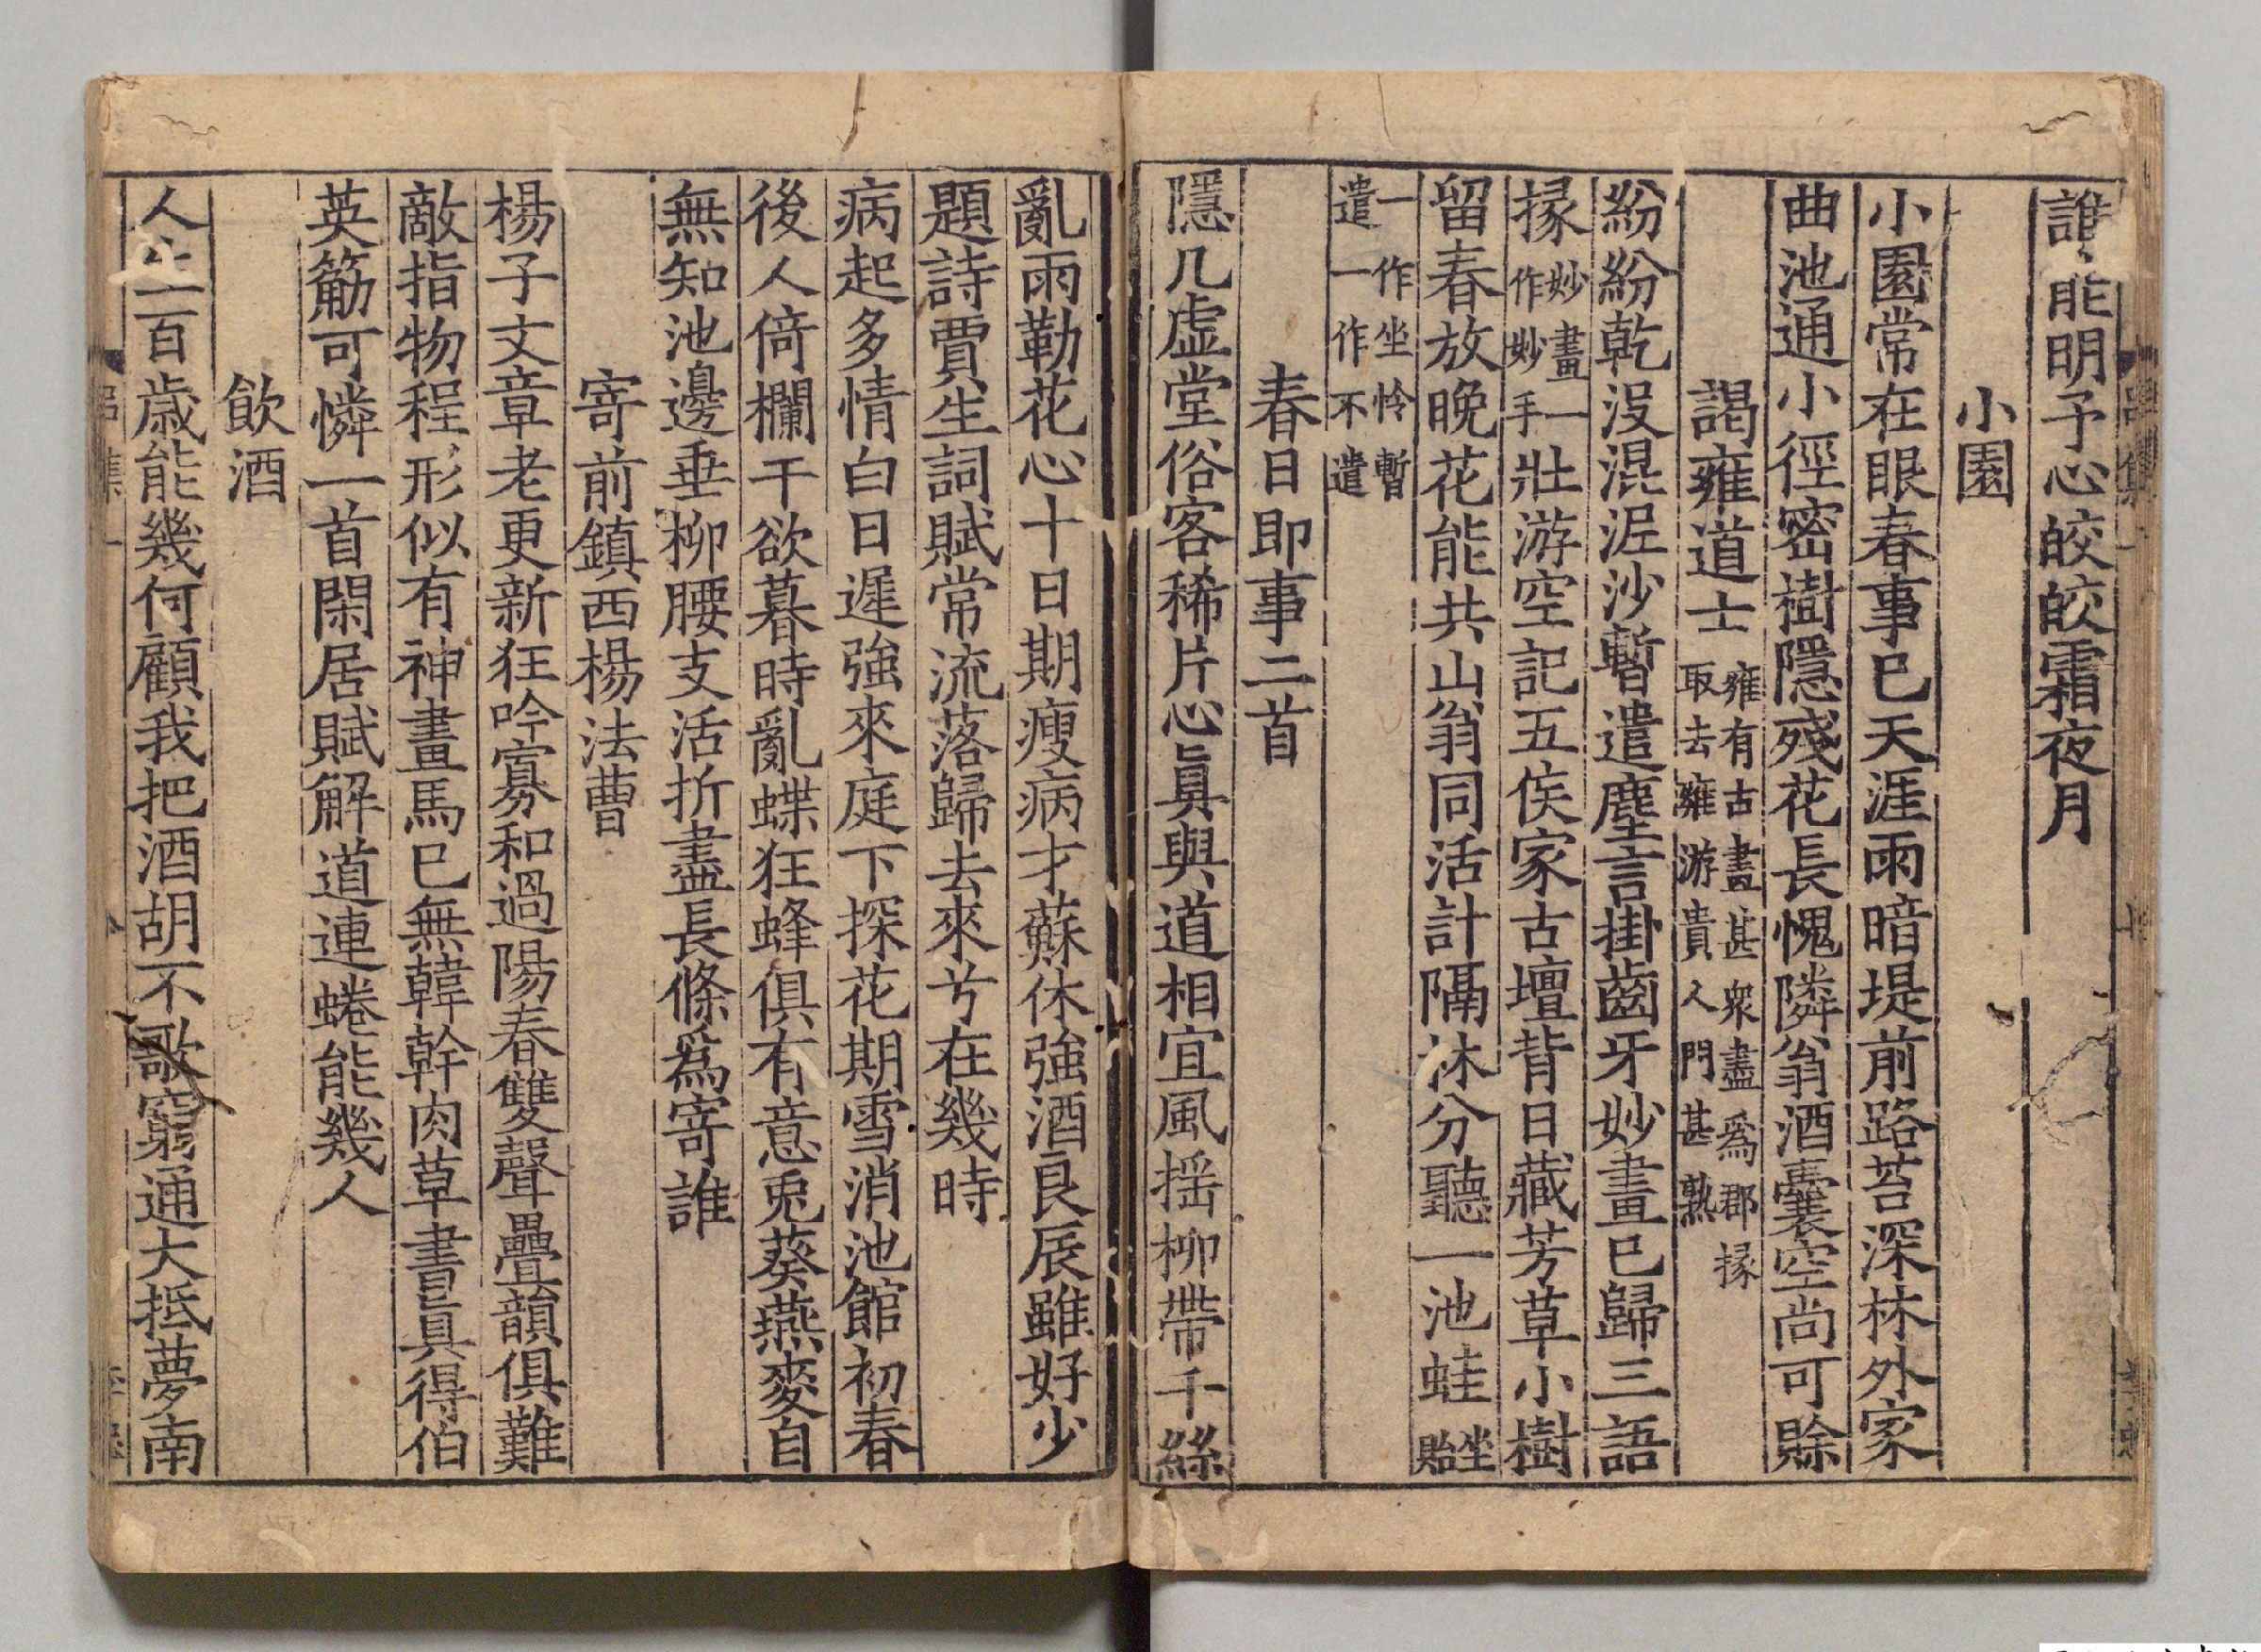 誰能明予心皎皎霜夜月
小園
小園常在眼春事已天涯雨暗堤前路苔深林外家
曲池通小徑密樹隱殘花長愧隣翁酒囊空尚可賖
謁雍道士雍有古畫甚衆盡爲郡掾
取去雍游貴人門甚熟
紛紛乾没混泥沙暫遣塵言掛齒牙妙畫已歸三語
掾妙畫一
作妙手壯游空記五侯家古壇背日藏芳草小樹
留春放晚花能共山翁同活計隔林分聽一池蛙坐
貽
一作坐怜暫
遣一作不遣
春日即事二首
隱几虛堂俗客稀片心眞與道相宜風揺柳帶千絲
亂雨勒花心十日期瘦病才蘇休強酒良辰雖好少
題詩賈生詞賦常流落歸去來兮在幾時
病起多情白日遲強來庭下探花期雪消池館初春
後人倚欄干欲暮時亂蝶狂蜂俱有意兎葵燕麥自
無知池邊垂柳腰支活折盡長條爲寄誰
寄前鎮西楊法曹
楊子文章老更新狂吟寡和過陽春雙聲疊韻俱難
敵指物程形似有神畫馬已無韓幹肉草書眞得伯
英筋可憐一首閑居賦解道連蜷能幾人
飲酒
人生百歲能幾何顧我把酒胡不歌窮通大抵夢南